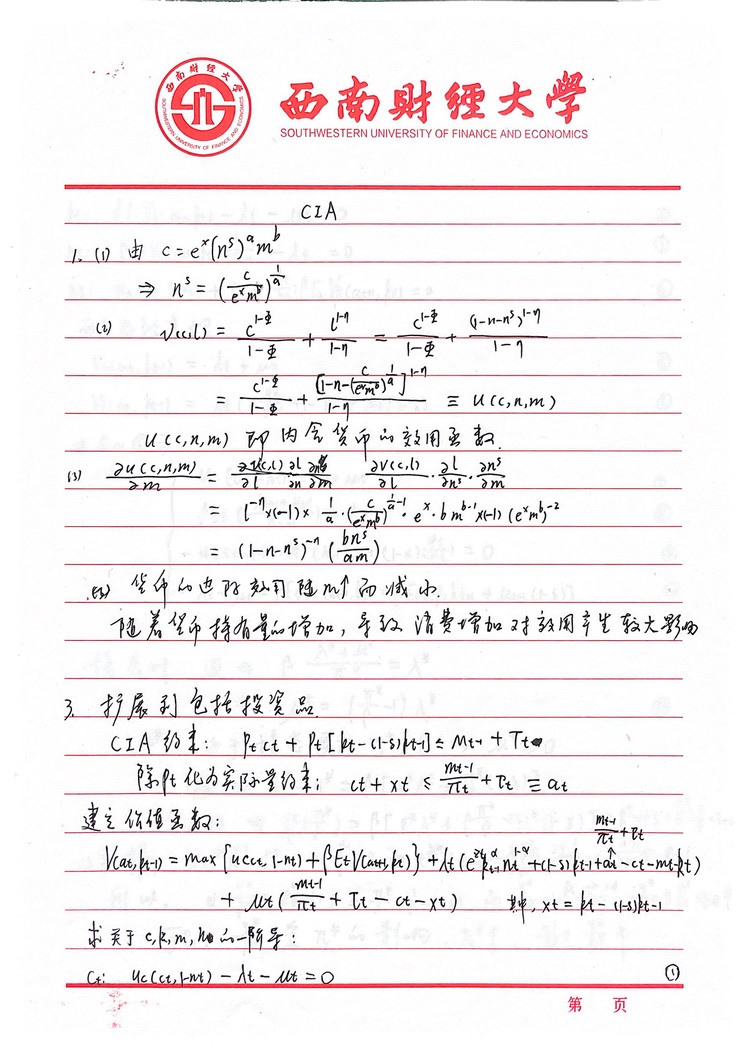 西南财经大学
SOUTHWESTERN UNIVERSITY OF FINANCE AND ECONOMICS
CIA
1. (1) 由 c = e^x (n^s)^a m^b
⇒ n^s = (c / (e^x m^b))^(1/a)
(2) v(c,l) = c^(1-Φ) / (1-Φ) + l^(1-η) / (1-η) = c^(1-Φ) / (1-Φ) + (1-n-n^s)^(1-η) / (1-η)
= c^(1-Φ) / (1-Φ) + [1-n-(c / (e^x m^b))^(1/a)]^(1-η) / (1-η) ≡ u(c,n,m)
u(c,n,m) 即内含货币的效用函数.
(3) ∂u(c,n,m)/∂m = ∂v(c,l)/∂l · ∂l/∂n^s · ∂n^s/∂m
= l^(-η) × (-1) × 1/a · (c / (e^x m^b))^(1/a - 1) · e^x · b m^(b-1) × (-1) (e^x m^b)^(-2)
= (1-n-n^s)^(-η) (b n^s / (a m))
货币的边际效用随m↑而减小.
随着货币持有量的增加, 导致消费增加对效用产生较大影响
3. 扩展到包括投资品.
CIA 约束: Pt ct + Pt [kt - (1-δ)kt-1] ≤ Mt-1 + Tt
除Pt 化为实际量约束: ct + xt ≤ mt-1/πt + τt ≡ at
建立价值函数:
mt-1/πt + τt
V(at, kt-1) = max {u(ct, 1-nt) + βEt V(at+1, kt)} + λt (e^zt kt-1^α nt^(1-α) + (1-δ)kt-1 + at - ct - mt - kt)
+ μt (mt-1/πt + τt - ct - xt) 其中, xt = kt - (1-δ)kt-1
求关于 c, k, m, n 的一阶导:
Ct: uc(ct, 1-nt) - λt - μt = 0
①
第 页